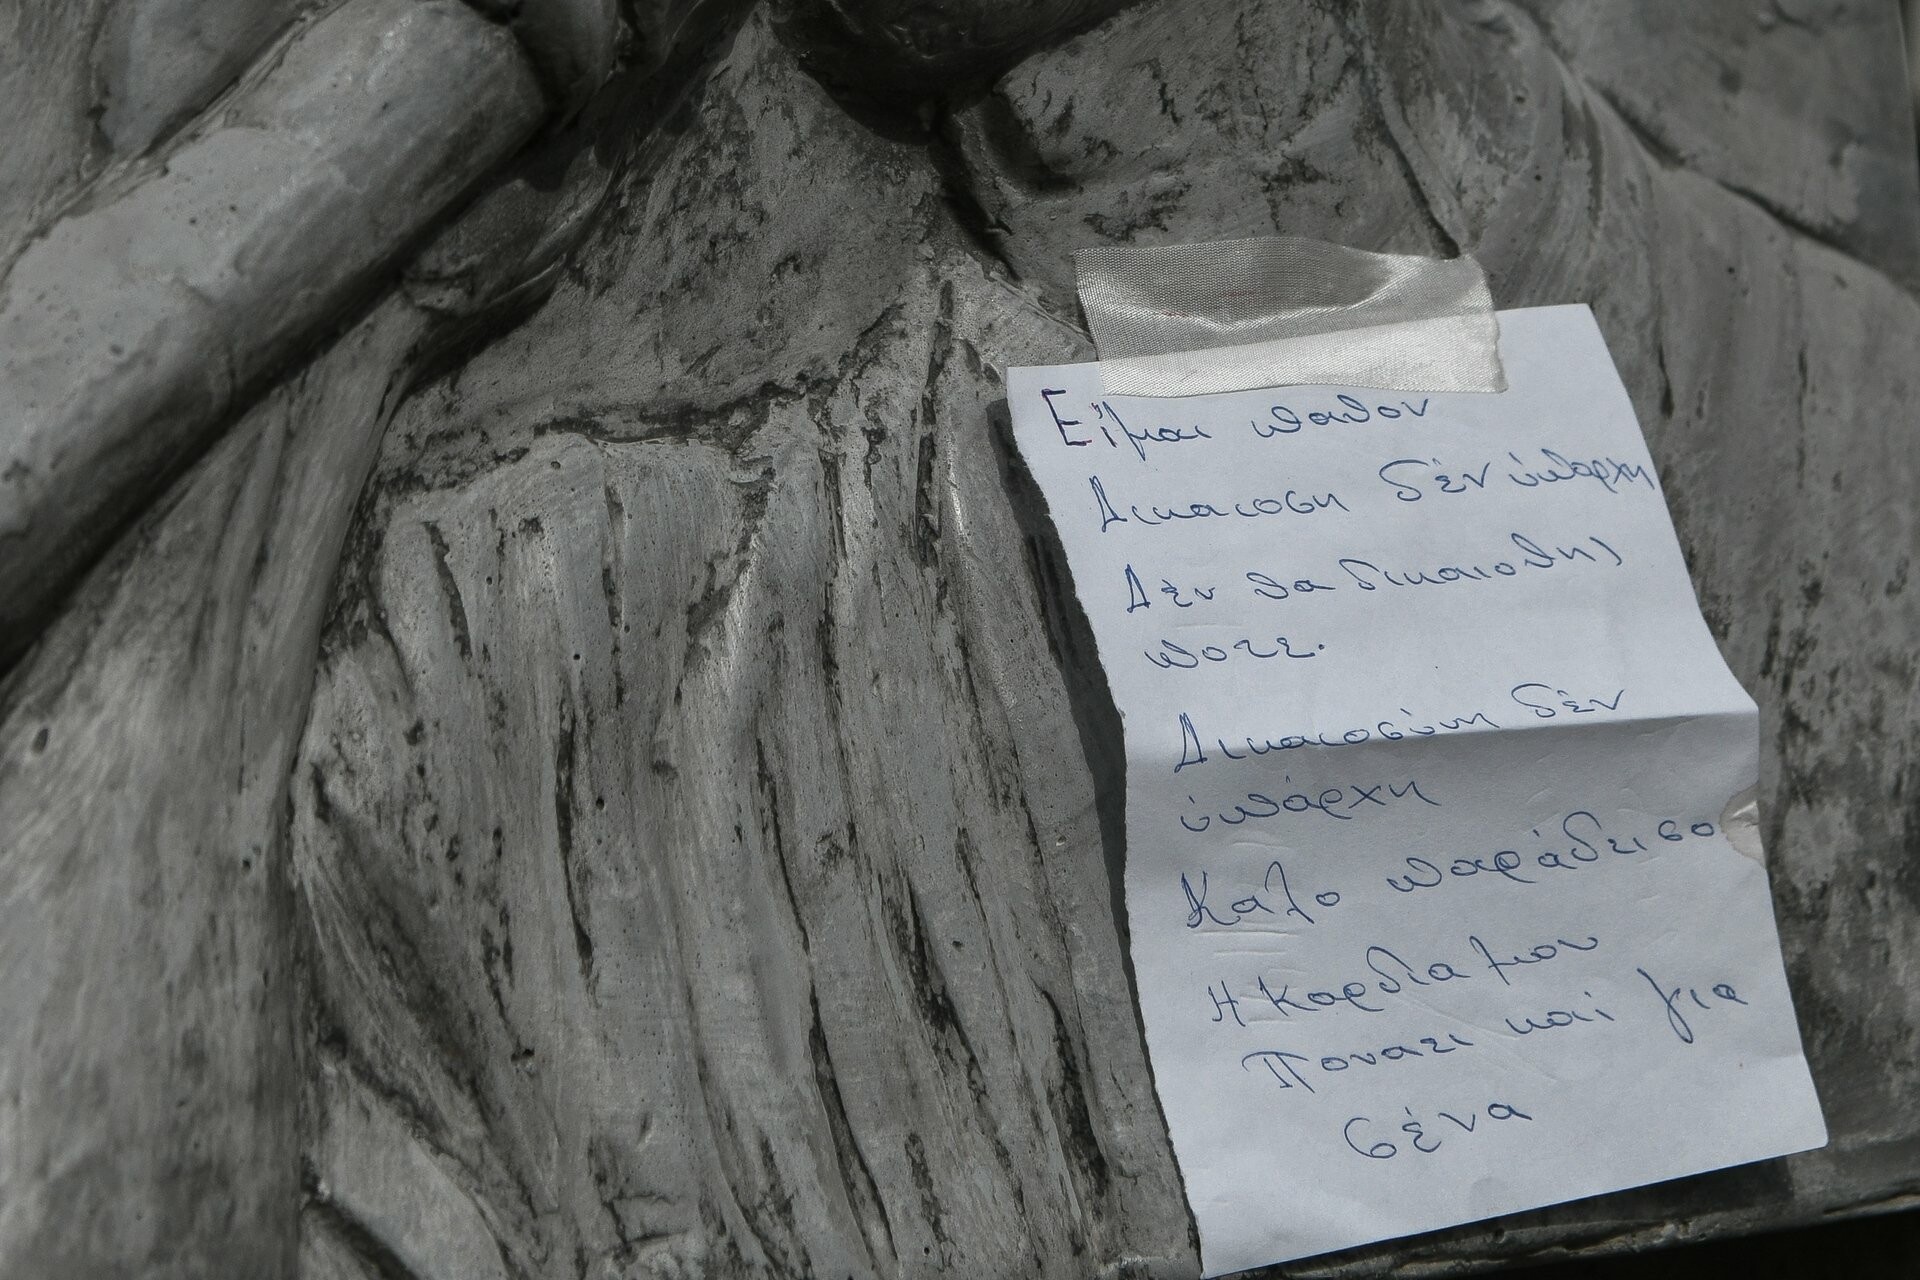 Είμαι παθον
Δικαιοση δέν ύπαρχη
Δέν θα δικαιοθης
ποτε.
Δικαιοσύνη δέν
ύπάρχη
Καλο παράδεισο
Η Καρδια μου
Ποναει και για
σένα